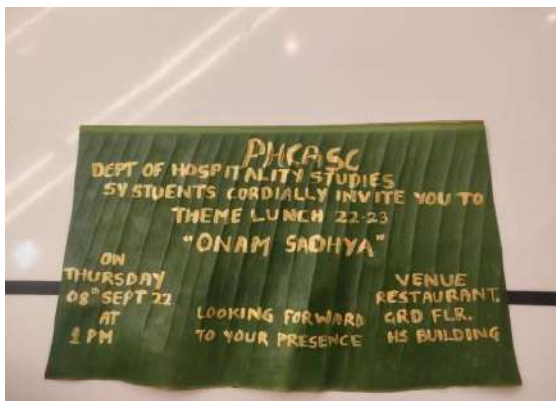 PHCASC
DEPT OF HOSPITALITY STUDIES
SY STUENTS CORDIALLY INVITE YOU TO
THEME LUNCH 22-23
"ONAM SADHYA"
ON
THURSDAY
08th SEPT 22
AT
1 PM
LOOKING FORWARD
TO YOUR PRESENCE
VENUE
RESTAURANT.
GRD FLR.
HS BUILDING